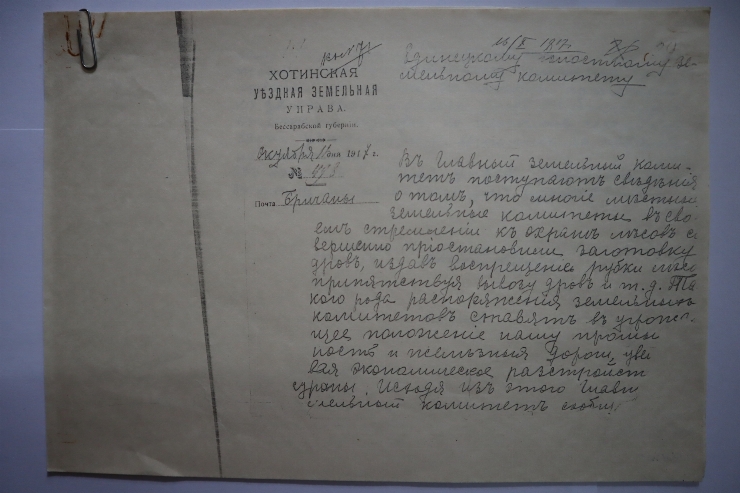 16/X 1917 г.
ХОТИНСКАЯ
УѢЗДНАЯ ЗЕМЕЛЬНАЯ
УПРАВА.
Бессарабской губерніи.
Октября 11 дня 1917 г.
№
Почта Бричаны
Единецкому волостному зе-
мельному комитету
Въ Главный земельный коми-
тетъ поступаютъ свѣдѣнія
о томъ, что многіе мѣстные
земельные комитеты въ сво-
емъ стремленіи къ охранѣ лѣсовъ со
вершенно пріостановили заготовку
дровъ, издавъ воспрещение рубки лѣса
припятствуя вывозу дровъ и т.д. Та
кого рода распоряженія земельныхъ
комитетовъ ставятъ въ угрожа-
щее положеніе нашу промы
ность и желѣзныя дороги, уве
вая экономическое разстройст
страны. Исходя изъ этого Главн
земельный комитетъ сообщ